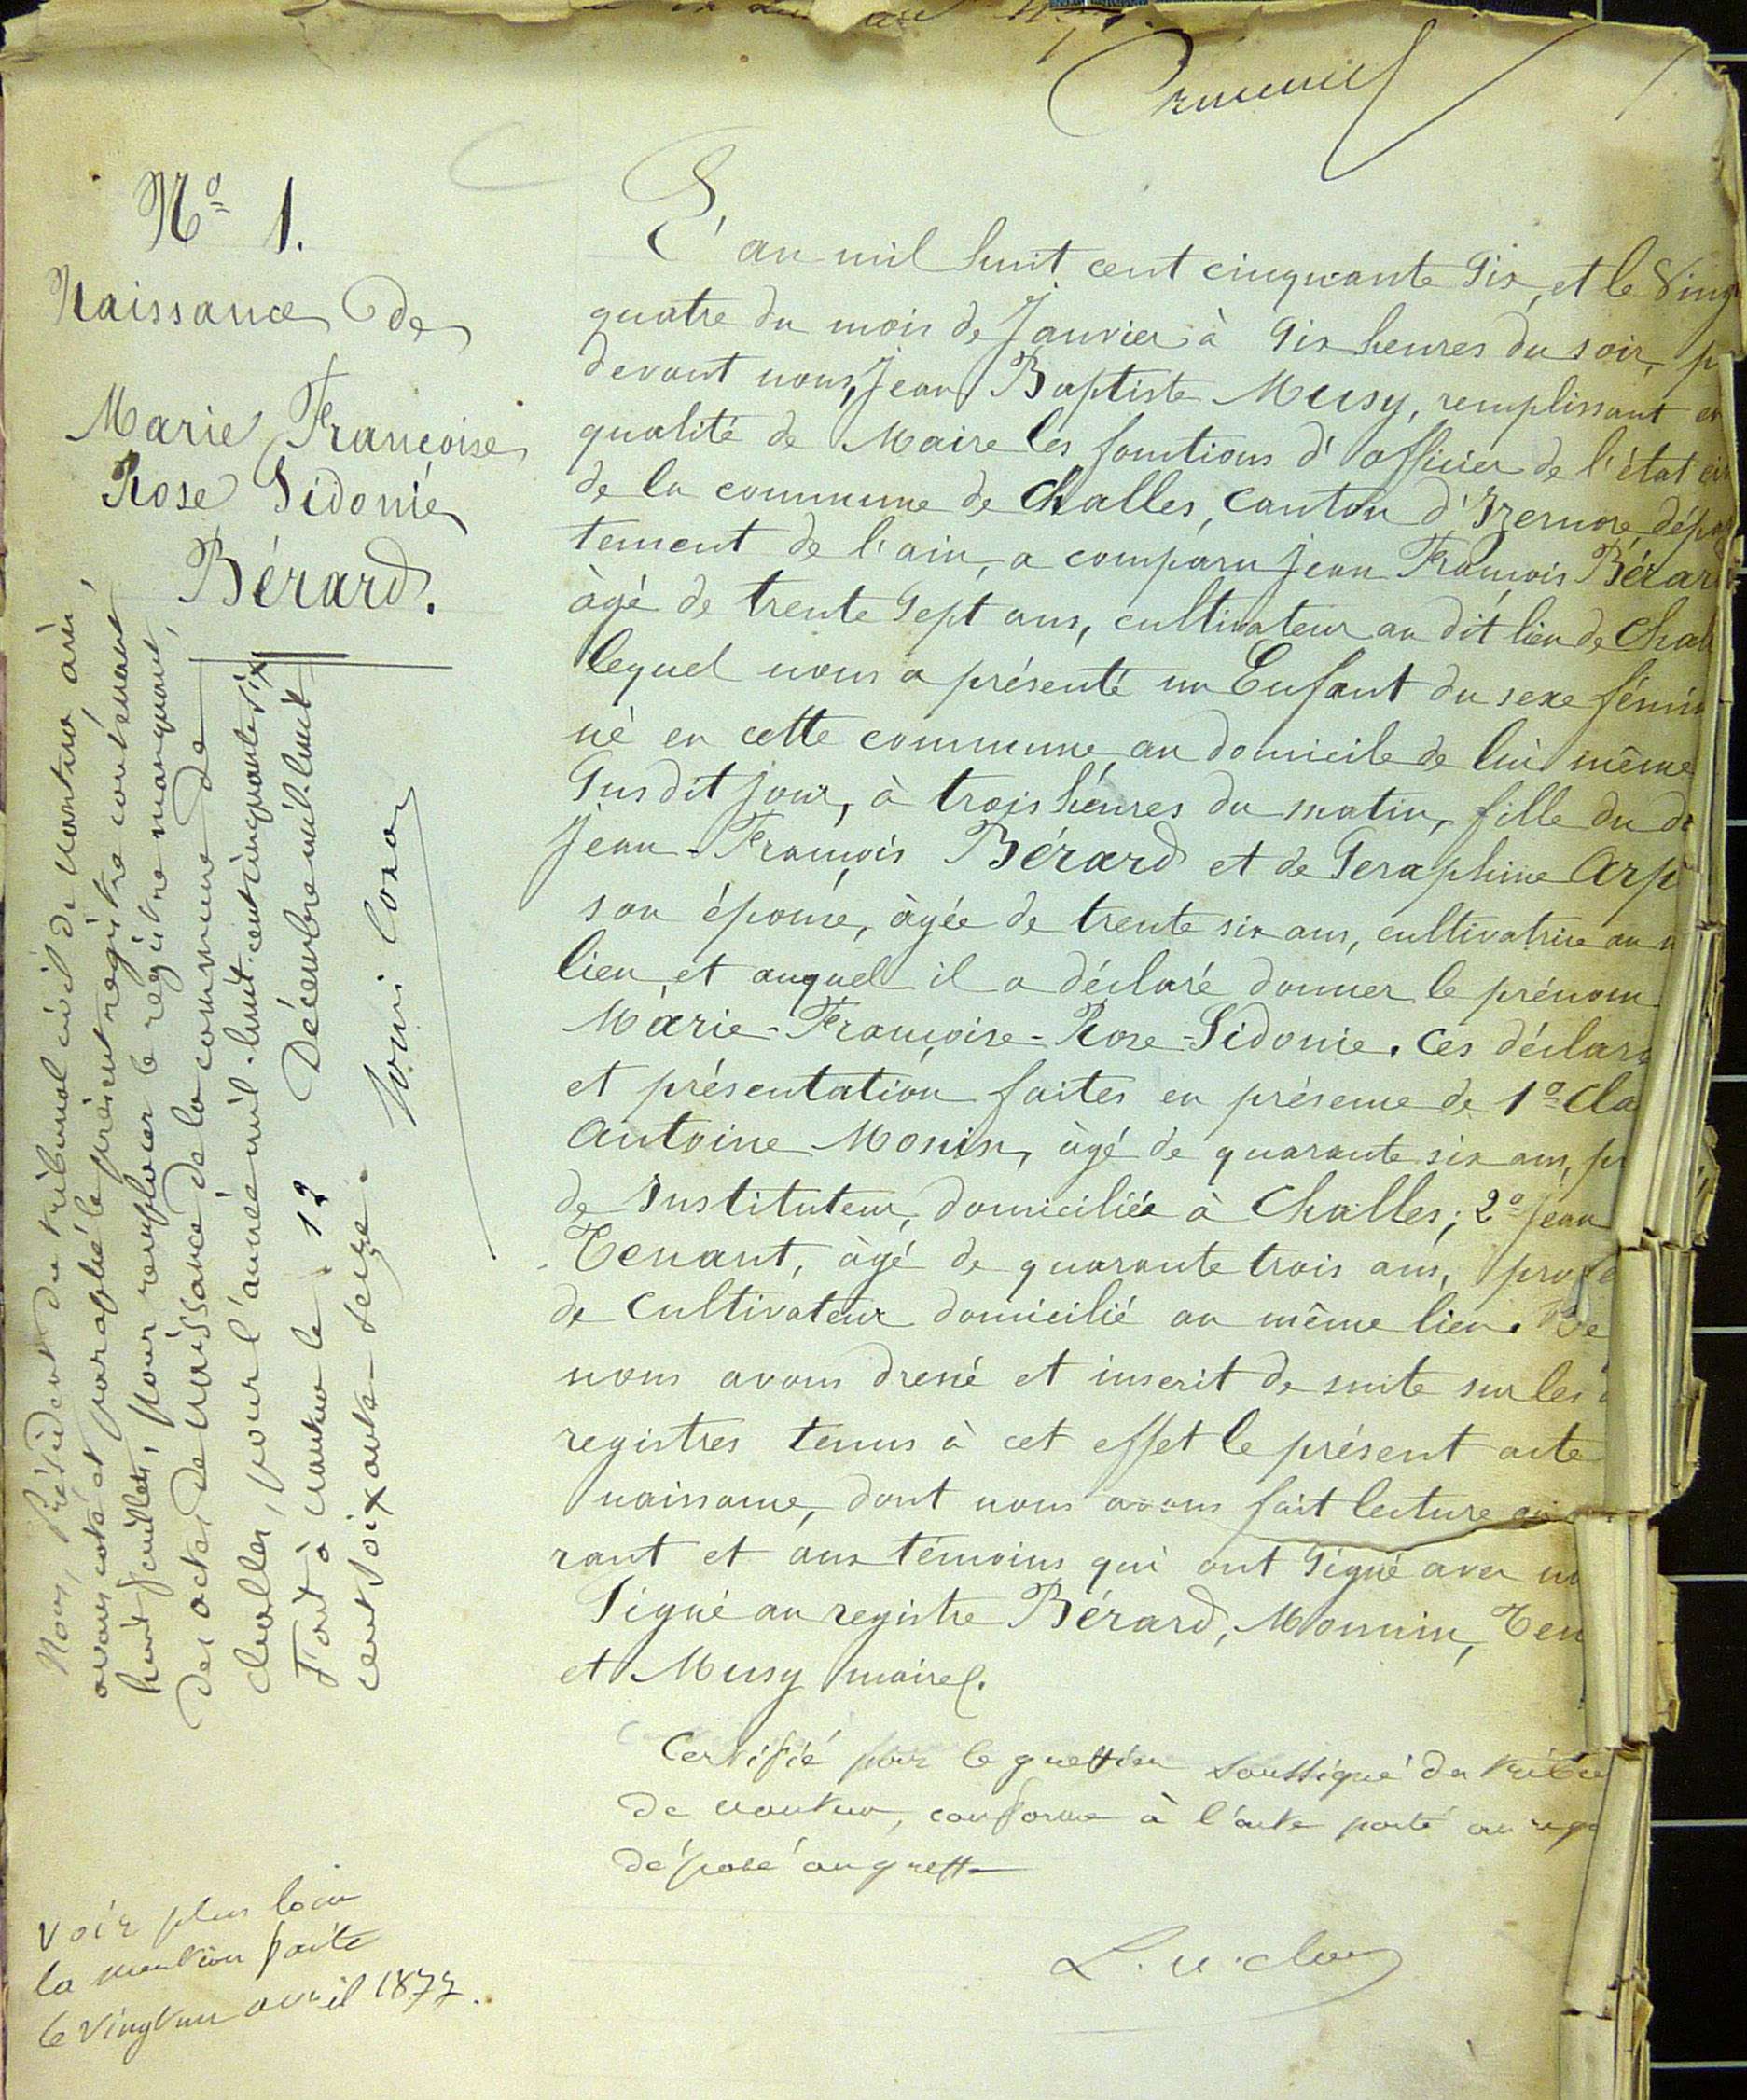 Nº 1.
Naissance de
Marie Françoise
Rose Sidonie
Bérard.
L'an mil huit cent cinquante six, et le ving
quatre du mois de Janvier à six heures du soir, p
devant nous, Jean Baptiste Musy, remplissant en
qualité de Maire les fonctions d'officier de l'état civ
de la commune de Challes, canton d'Izernore, dépar
tement de l'ain, a comparu Jean François Bérar
âgé de trente sept ans, cultivateur au dit lieu de Chall
lequel nous a présenté un Enfant du sexe fémin
né en cette commune, au domicile de lui même
susdit jour, à trois héures du matin, fille du d
Jean-François Bérard et de Seraphine Arp
son épouse, âgée de trente six ans, cultivatrice au m
lieu, et auquel il a déclaré donner le prénom
Marie-Françoise-Rose-Sidonie. Ces déclara
et présentation faites en présence de 1º Cla
Antoine Monin, âgé de quarante six ans, pr
de Instituteur, domiciliée à Challes; 2º Jean
Tenant, âgé de quarante trois ans, profe
de Cultivateur domicilié au même lieu. De
nous avons dressé et inscrit de suite sur les d
registres tenus à cet effet le présent acte
naissance, dont nous avons fait lecture au
rant et aux témoins qui ont signé avec no
Signé au registre Bérard, Monnin, Ten
et Musy maire.
Certifié par le greffier soussigné du tribu
de nantua, conforme à l'acte porté au reg
déposé au greffe
Nous, Président du tribunal civil de nantua, ain,
avons coté et paraphé le présent registre contenant
huit feuillets, pour remplacer le registre manquant,
des actes de naissance de la commune de
challes, pour l'année mil-huit-cent cinquante-six
Fait à nantua le 12 Décembre mil-huit
cent soixante seize.
Voir plus loin
la mention faite
le vingt un avril 1877.